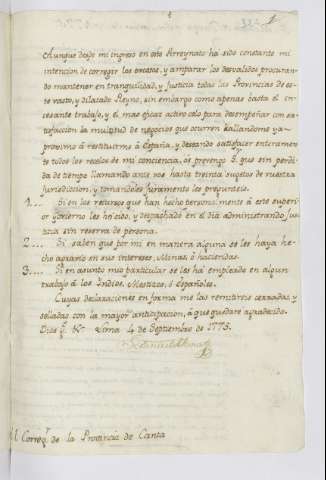 Aunque desde mi ingreso en este Virreynato ha sido constante mi
intencion de corregir los excesos, y amparar los desvalidos procuran
do mantener en tranquilidad, y Justicia todas las Provincias de es-
te vasto, y dilatado Reyno, sin embargo como apenas basta el in-
cesante trabajo, y el mas eficaz activo celo para desempeñar con sa-
tisfaccion la multitud de negocios que ocurren hallandome ya
proximo à restituirme à España, y deseando satisfacer enteramen-
te todos los recelos de mi conciencia, os prevengo q.e sin perdi
da de tiempo llamando ante vos hasta treinta sugetos de vuestra
jurisdiccion, y tomandoles juramento les pregunteis.
1.... Si en los recursos que han hecho personalmente à este superi
or govierno les he oido, y despachado en el dia administrando jus
ticia sin reserva de persona.
2.... Si saben que por mi en manera alguna se les haya he-
cho agravio en sus intereses, Minas, ò haciendas.
3.... Si en asunto mio particular se les ha empleado en algun
trabajo à los Indios, Mestizos, ò Españoles.
Cuyas declaraciones en forma me las remitireis cerradas, y
selladas con la mayor anticipacion, à que quedaré agradecido.
Dios g.e &c Lima 4 de Septiembre de 1775.
Correg.r de la Provincia de Canta